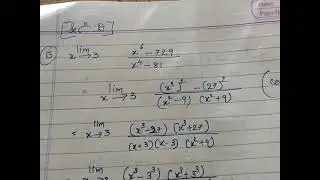 (B) lim x→3 x⁶ - 729 / x⁴ - 81
= lim x→3 (x³)² - (27)² / (x² - 9) (x² + 9)
= lim x→3 (x³ - 27) (x³ + 27) / (x+3) (x-3) (x² + 9)
lim (x³ - 3³) (x³ + 3³)